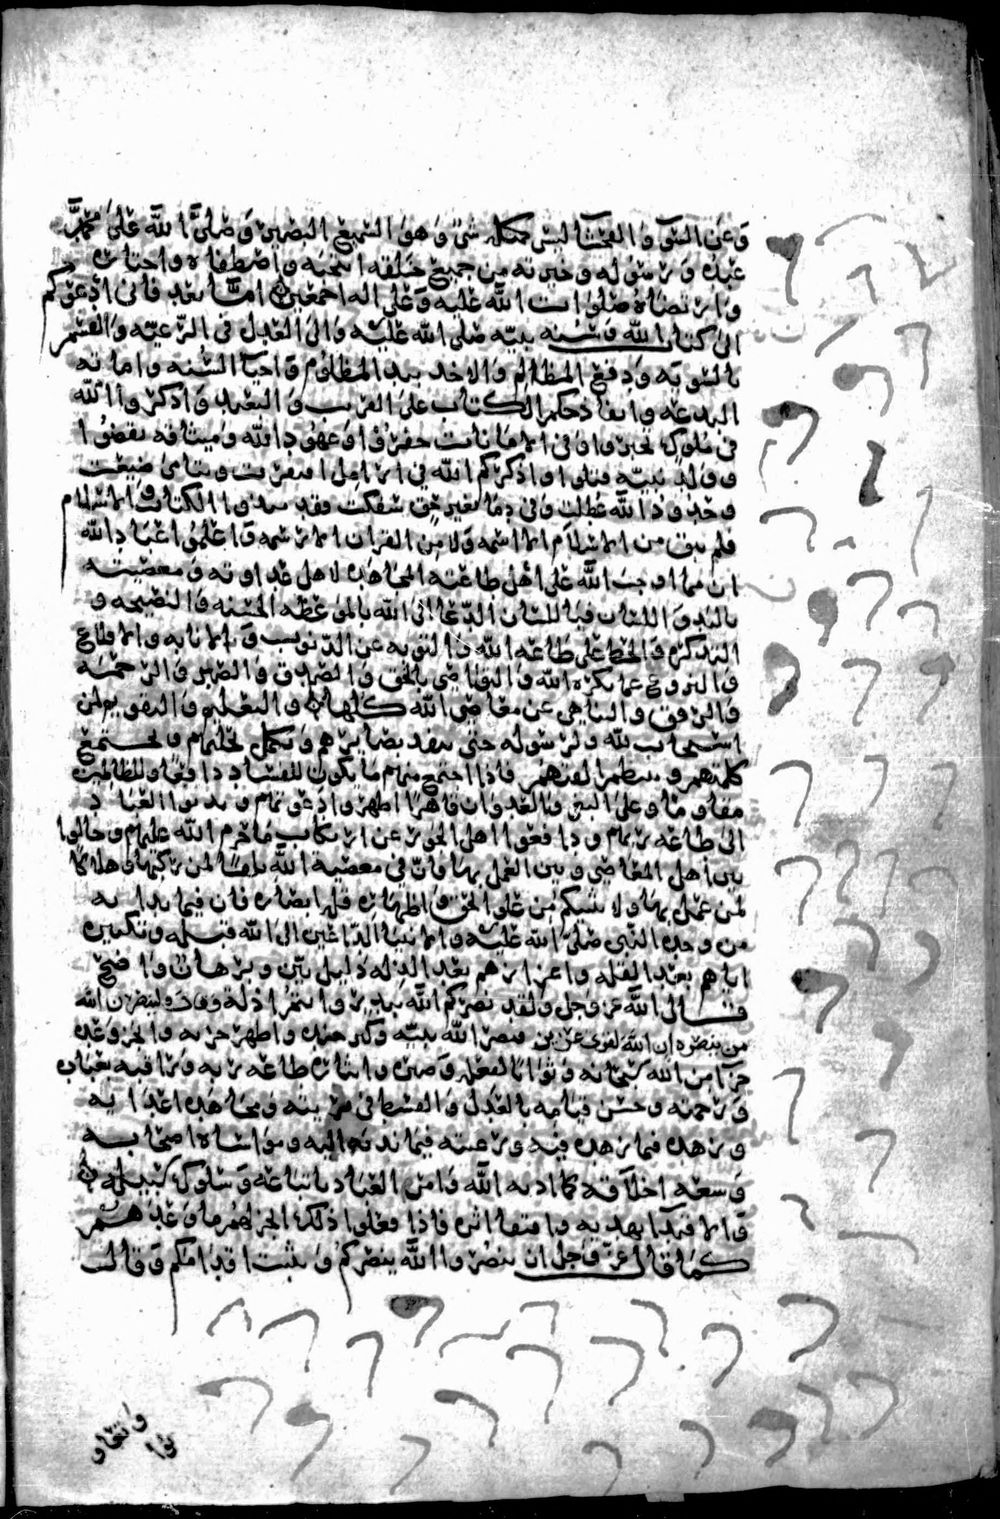 وعن السوء والفحشاء ليس كمثله شيء وهو السميع البصير وصلى الله على محمد
عبده ورسوله وخيرته من جميع خلقه انتجبه واصطفاه واختاره
وارتضاه صلوات الله عليه وعلى اله اجمعين اما بعد فاني ادعوكم
الى كتاب الله وسنة نبيه صلى الله عليه والى العدل في الرعيه والقسم
بالسويه ودفع المظالم والاخذ بيد المظلوم واحيا السنه واماته
البدعه وانفاذ حكم الكتاب على القريب والبعيد واذكروا الله
في ملوك تجبروا وفي امانات خفروا وعهود الله وميثاقه نقضوا
وولد نبيه قتلوا واذكركم الله في ارامل افقرت ويتامى ضيعت
وحدود الله عطلت وفي دما بغير حق سفكت فقد نبذوا الكتاب والاسلام
فلم يبق من الاسلام الا اسمه ولا من القران الا رسمه واعلموا عباد الله
ان مما اوجب الله على اهل طاعته المجاهده لاهل عداوته ومعصيته
باليد واللسان فباللسان الدعا الى الله بالموعظه الحسنه والنصيحه و
التذكره والحظ على طاعه الله والتوبه عن الذنوب والانابه والاقلاع
والنزوع عما يكره الله والتواصي بالحق والصدق والصبر والرحمه
والرفق والتناهي عن معاصي الله كلها والتعليم والتقويم لمن
استجاب لله ولرسوله حتى تنفذ بصايرهم وتكمل نحلتهم وتجتمع
كلمتهم وتنتظم الفتهم فاذا اجتمع منهم ما يكون للفساد دافعا وللظالمين
مقاوما وعلى البغي والعدوان قاهرا اظهروا دعوتهم وندبوا العباد
الى طاعه ربهم ودافعوا اهل الجور عن ارتكاب ما حرم الله عليهم وحالوا
بين اهل المعاصي وبين العمل بها فان في معصيه الله تلفا لمن ركبها وهلاكا
لمن عمل بها ولا يثنيكم من علو الحق واظهاره قله انصاره فان فيما بدا به
من وحده النبي صلى الله عليه والانبيا الداعين الى الله قبله وتكثيره
اياهم بعد القله واعزازهم بعد الذله دليل بين وبرهان واضح
قال الله عز وجل ولقد نصركم الله ببدر وانتم اذلة وقال ولينصرن الله
من ينصره ان الله لقوي عزيز فنصر الله نبيه وكثر جنده واظهر حزبه وانجز وعده
جزا من الله سبحانه وثوابا لفعله وصبره وايثاره طاعه ربه ورافته بعباده
ورحمته وحسن قيامه بالعدل والقسط في بريته ومجاهده اعدايه
وزهده فيما زهده فيه ورغبته فيما ندبه اليه ومواساه اصحابه
وسعه اخلاقه كما ادبه الله وامر العباد باتباعه وسلوك سبيله
والاقتدا بهديه واقتفا اثره فاذا فعلوا ذلك انجز لهم ما وعدهم
كما قال عز وجل ان تنصروا الله ينصركم ويثبت اقدامكم وقال